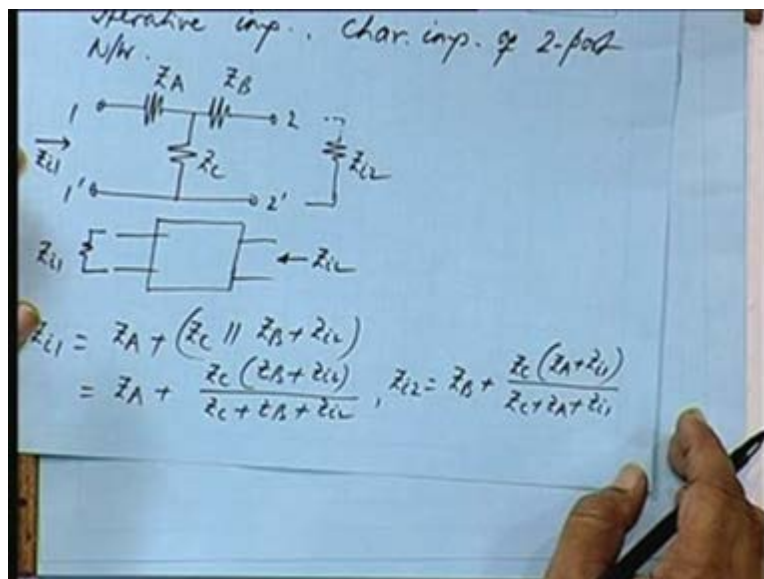 Iterative imp., Char. imp. of 2-port
N/W.
Z_A Z_B
1 2
Z_i1 Z_C Z_i2
1' 2'
Z_i1 ← Z_i2
Z_i1 = Z_A + (Z_C || Z_B + Z_i2)
= Z_A + Z_C (Z_B + Z_i2) / Z_C + Z_B + Z_i2 , Z_i2 = Z_B + Z_C (Z_A + Z_i1) / Z_C + Z_A + Z_i1